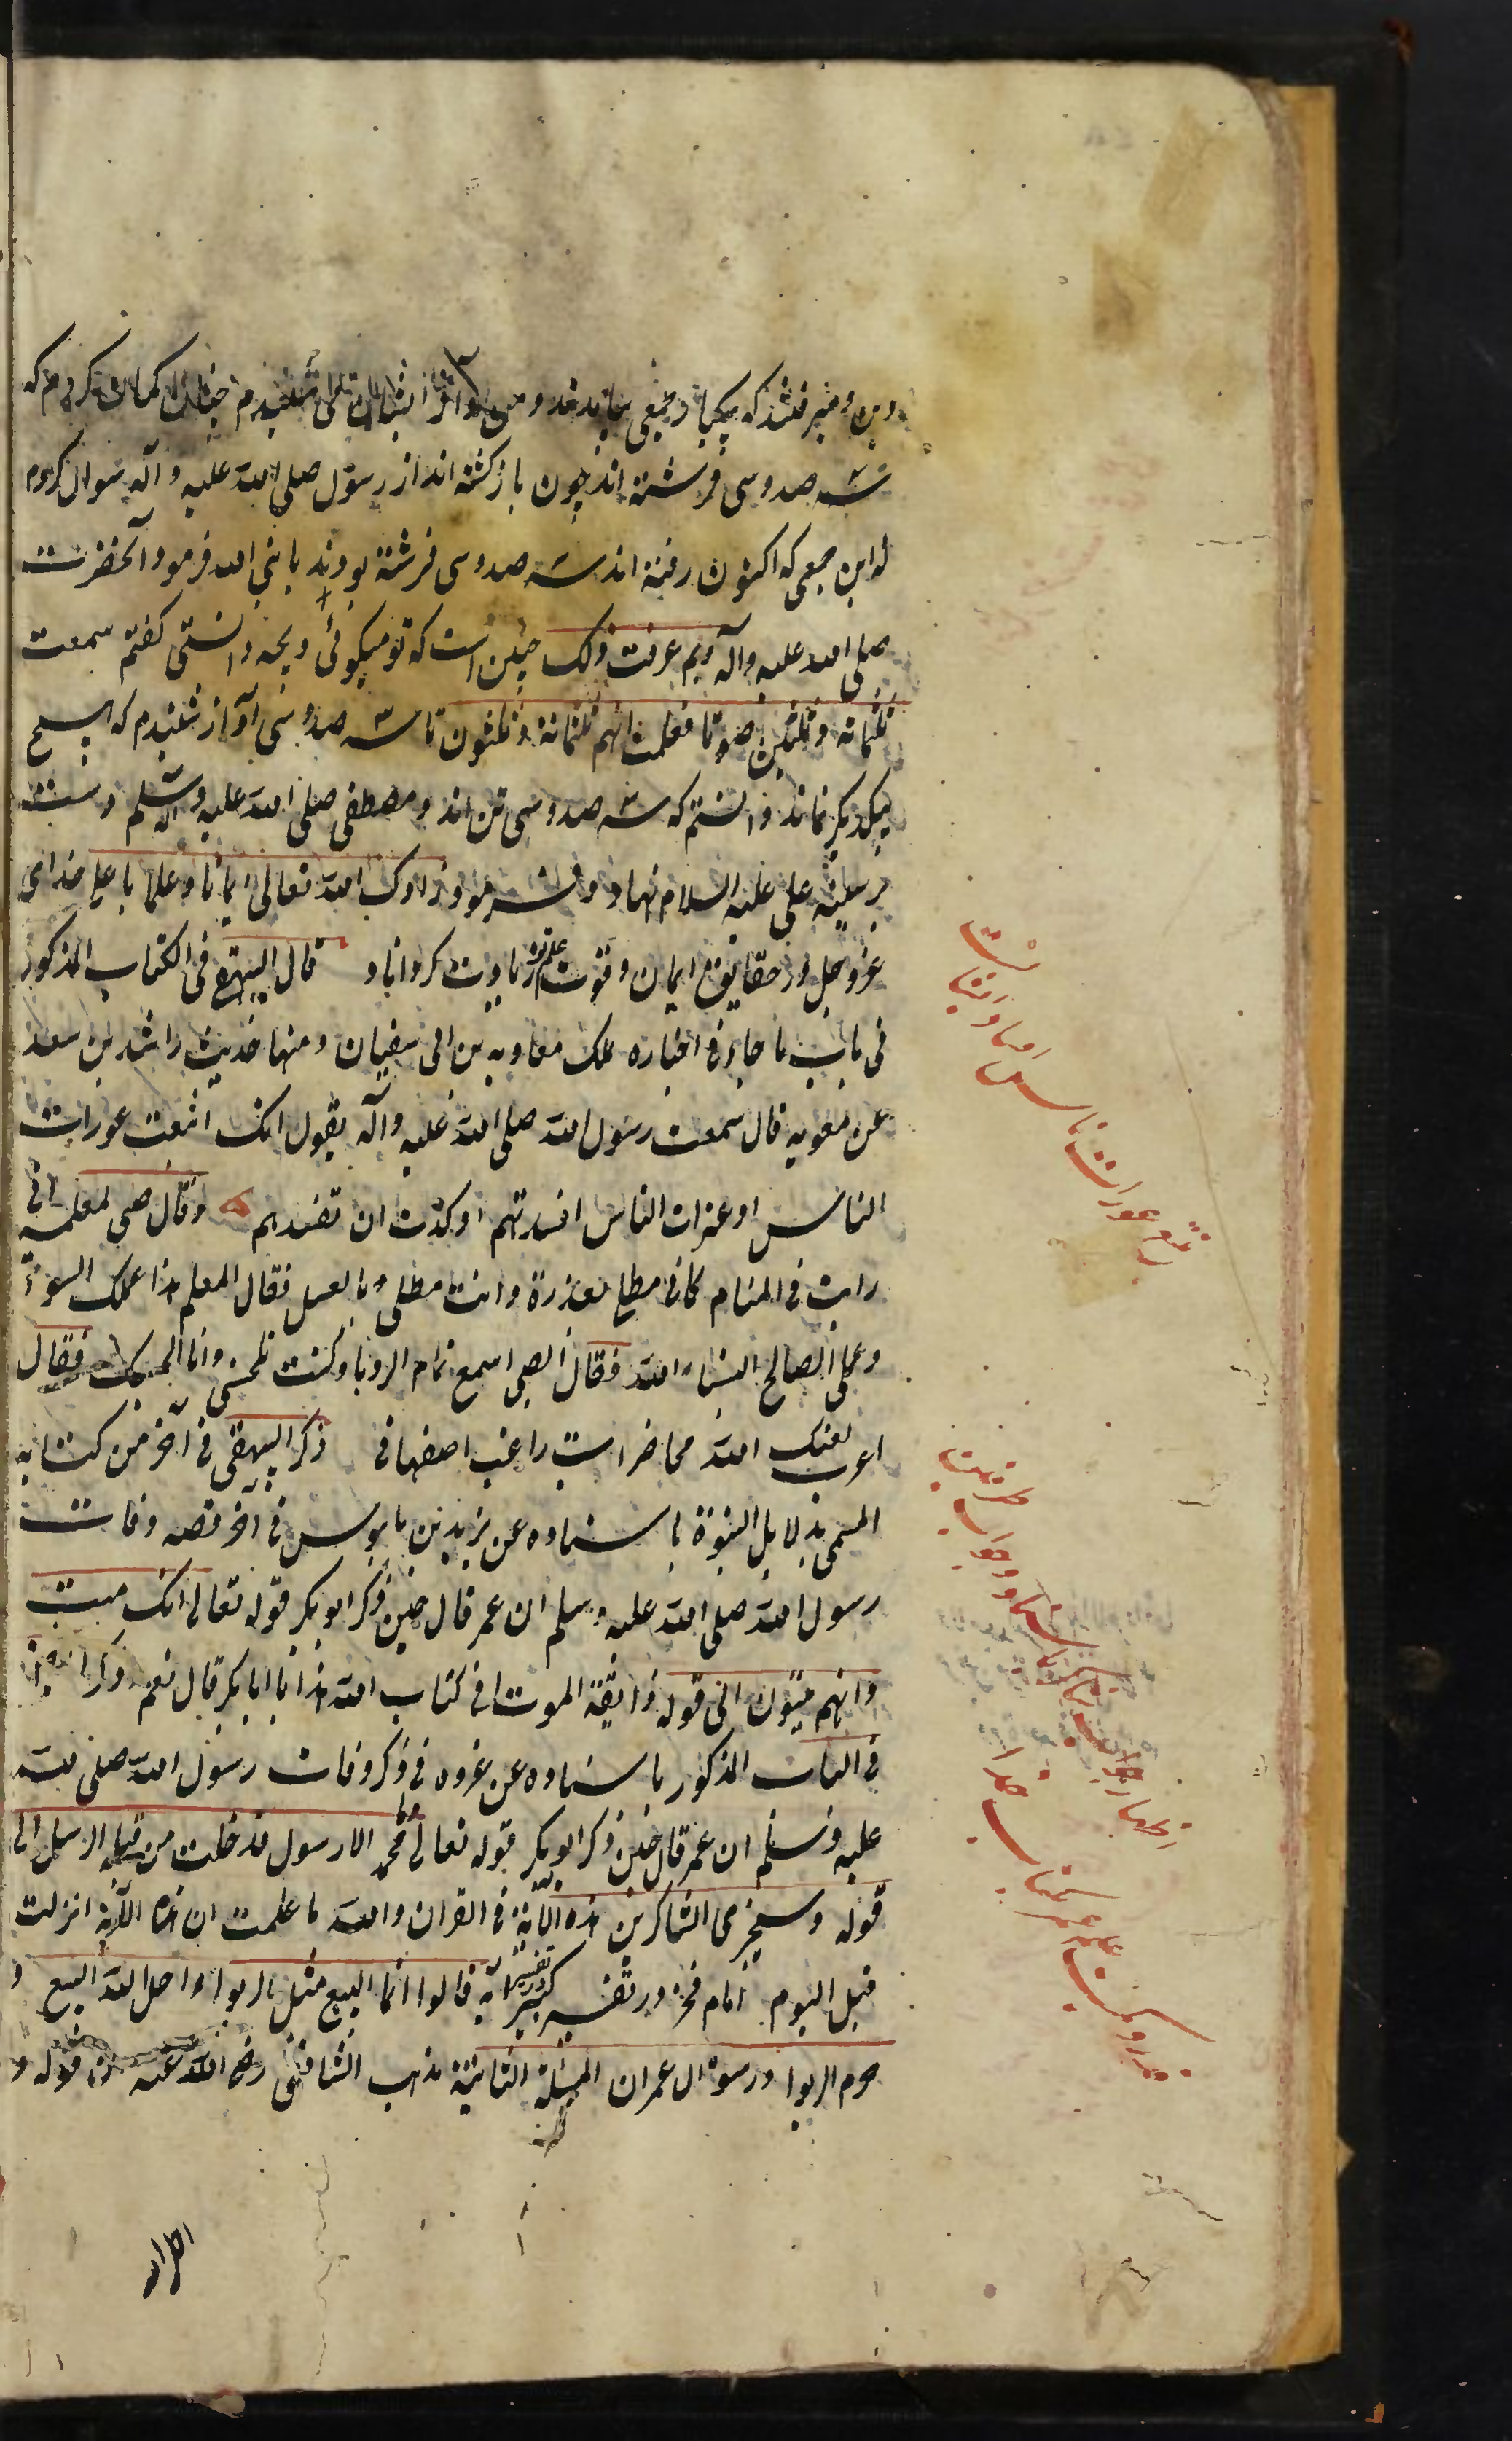 شه صد و سی فرشته اند چون باز گشته اند از رسول صلی الله علیه و آله سوال کردم
که این جمعی که اکنون رفته اند سه صد و سی فرشته بودند یا نبی الله فرمود آنحضرت
صلی الله علیه و آله وبم عرفت ذلک چنین است که تو میگوئی و بچه دانستی گفتم سمعت
ثلثمائة و ثلثین صوتا فعلمت انهم ثلثمائة و ثلثون تا سه صد و سی آواز شنیدم که هیچ
بیکدیگر نماند دانستم که سه صد و سی تن اند و مصطفی صلی الله علیه و آله و سلم دست
بر سینه علی علیه السلام نهاد و فرمود زادک الله تعالی ایمانا و علما یا علی خدای
عز و جل در حقایق ایمان و قوت علم تو زیادت کرداناد قال البیهقی فی الکتاب المذکور
فی باب ما جاء فی اخباره ملک معاویه بن ابی سفیان و منها حدیث راشد بن سعد
عن معویه قال سمعت رسول الله صلی الله علیه و آله یقول انک اتبعت عورات
الناس او عثرات الناس افسدتهم او کدت ان تفسدهم وقال صبی لمعلمه انی
رایت فی المنام کانی مطلی بعذرة و انت مطلی بالعسل فقال المعلم هذا عملک السوء
و عملی الصالح انشاء الله فقال الصبی اسمع تمام الرویا و کنت تلحسنی و انا الحسک فقال
اعزب لعنک الله محاضرات راغب اصفهانی ذکر البیهقی فی آخر من کتابه
المسمی بدلایل النبوة باسناده عن یزید بن بابنوس فی آخر قصه وفات
رسول الله صلی الله علیه و سلم ان عمر قال حین ذکر ابو بکر قوله تعالی انک میت
و انهم میتون الی قوله ذایقة الموت افی کتاب الله هذا یا ابا بکر قال نعم و ذکر ایضا
فی الباب المذکور باسناده عن عروه فی ذکر وفات رسول الله صلی الله
علیه و سلم ان عمر قال حین ذکر ابو بکر قوله تعالی و ما محمد الا رسول قد خلت من قبله الرسل الی
قوله و سیجزی الشاکرین هذه الآیة فی القران و الله ما علمت ان هذه الآیة انزلت
قبل الیوم امام فخر در تفسیر کبیر در تفسیر آیه قالوا انما البیع مثل الربوا و احل الله البیع و
حرم الربوا در سورة ال عمران المسئلة الثانیة مذهب الشافعی رضی الله عنه ان قوله و
تتبع عورات ناس افساد ایشانست